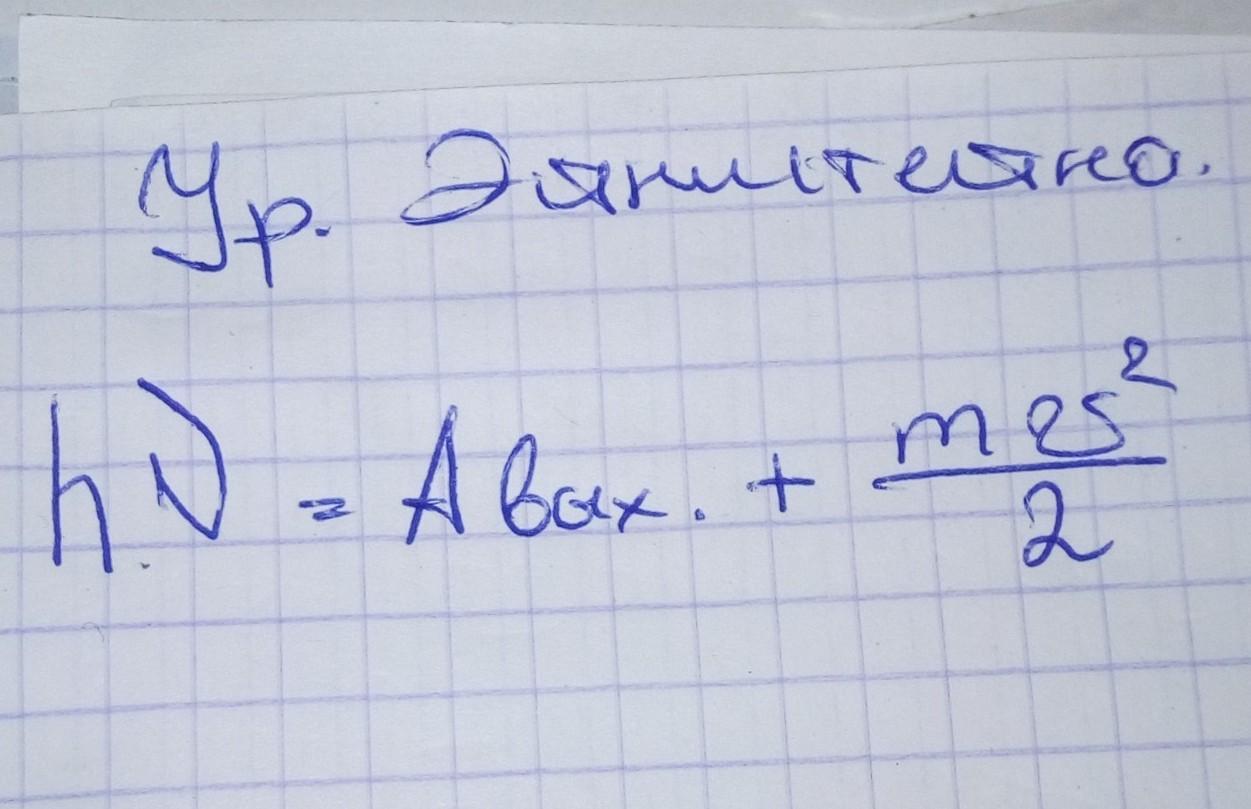 Ур. Эйнштейна.
hν = A вых. + mv²/2